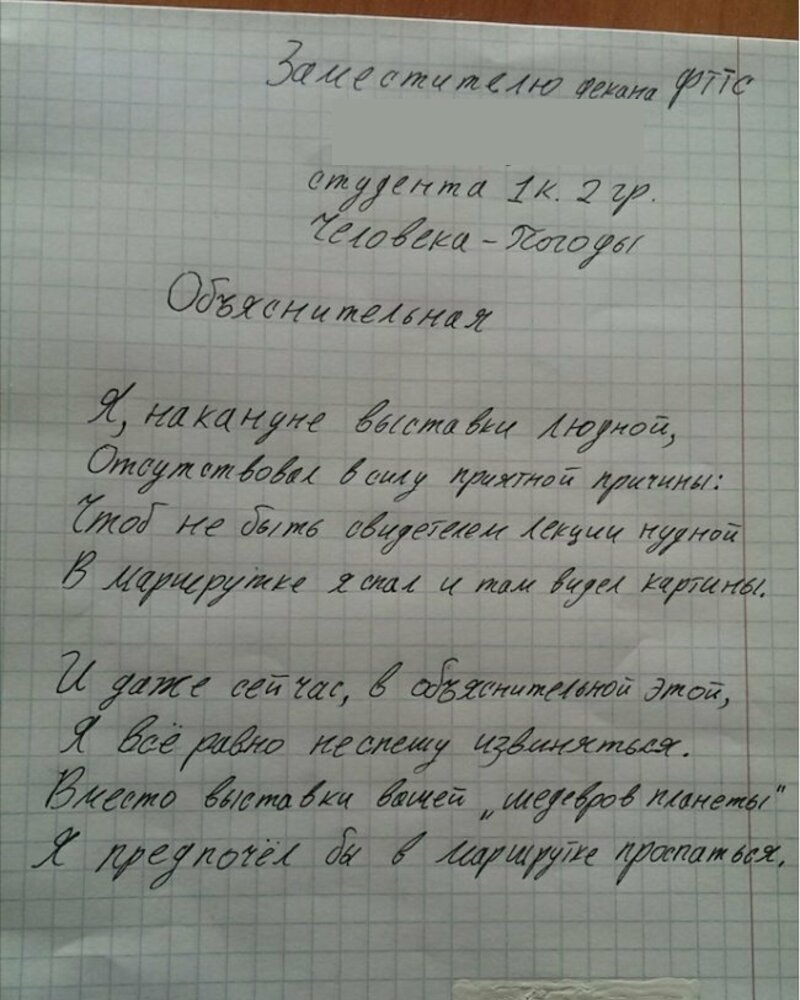 Заместителю декана ФТТС
студента 1 к. 2 гр.
Человека-Погоды
Объяснительная
Я, накануне выставки людной,
Отсутствовал в силу приятной причины:
Чтоб не быть свидетелем лекции нудной
В маршрутке я спал и там видел картины.
И даже сейчас, в объяснительной этой,
Я всё равно не спешу извиняться.
Вместо выставки вашей „шедевров планеты"
Я предпочёл бы в маршрутке проспаться.